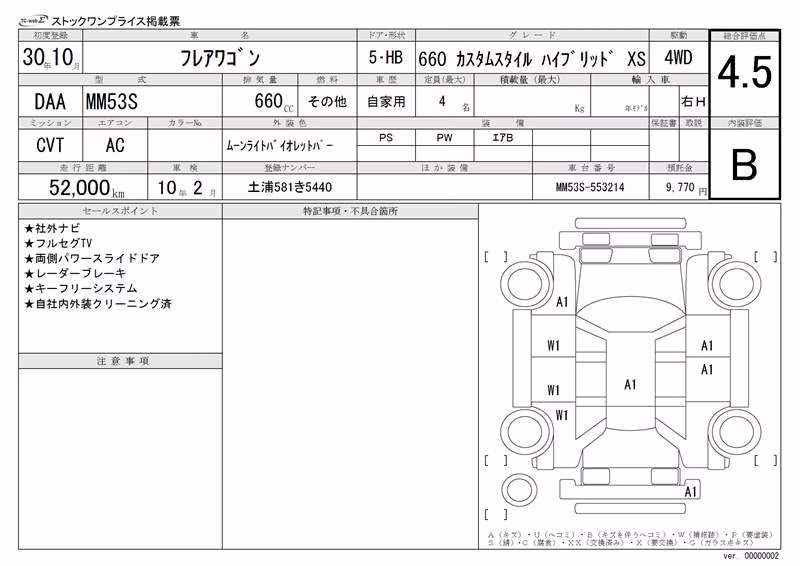 TC-webΣ ストックワンプライス掲載票
初度登録 車名 ドア・形状 グレード 駆動 総合評価点
30年10月 フレアワゴン 5・HB 660 カスタムスタイル ハイブリッド XS 4WD 4.5
型式 排気量 燃料 車歴 定員(最大) 積載量(最大) 輸入車
DAA MM53S 660CC その他 自家用 4名 Kg 年モデル 右H
ミッション エアコン カラーNo. 外装色 装備 保証書 取説 内装評価
CVT AC ムーンライトバイオレットパー PS PW エアB B
走行距離 車検 登録ナンバー ほか装備 車台番号 預託金
52,000km 10年2月 土浦581き5440 MM53S-553214 9,770円
セールスポイント 特記事項・不具合箇所
★社外ナビ
★フルセグTV
★両側パワースライドドア
★レーダーブレーキ
★キーフリーシステム
★自社内外装クリーニング済
注意事項
[ ] [ ]
A1
W1 A1
A1
W1 A1
W1
[ ] [ ]
A1
[ ]
A(キズ)・U(ヘコミ)・B(キズを伴うヘコミ)・W(補修跡)・P(要塗装)
S(錆)・C(腐食)・XX(交換済み)・X(要交換)・G(ガラス点キズ)
ver. 00000002